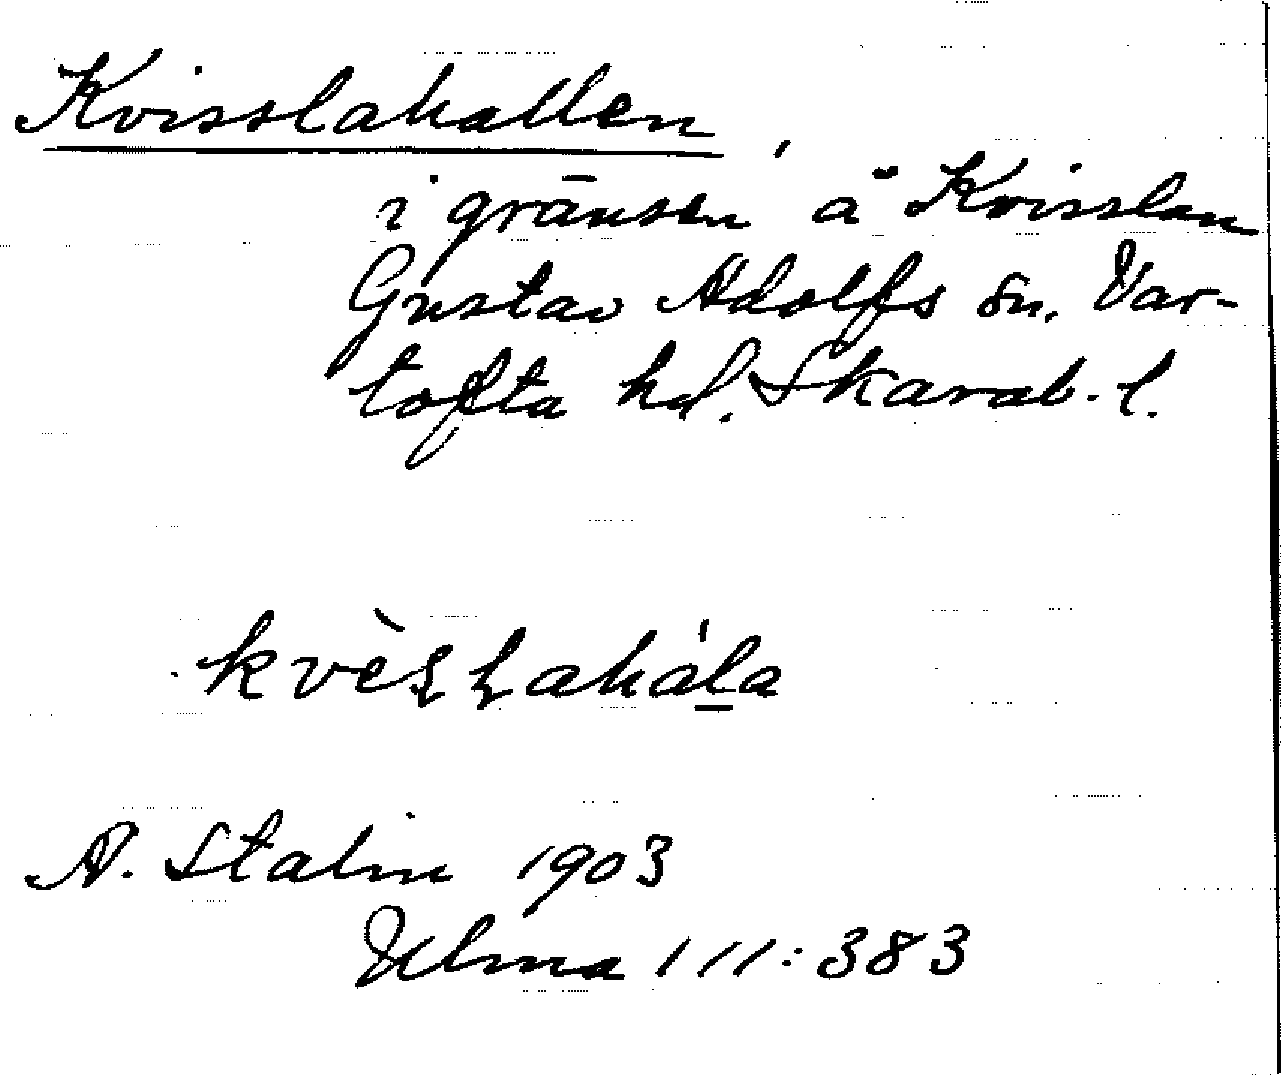 Kvisslahallen,
i gränsen å Kvisslan
Gustav Adolfs sn. Var-
tofta hd. Skarab. l.
A. Stalin 1903
Ulma 111:383